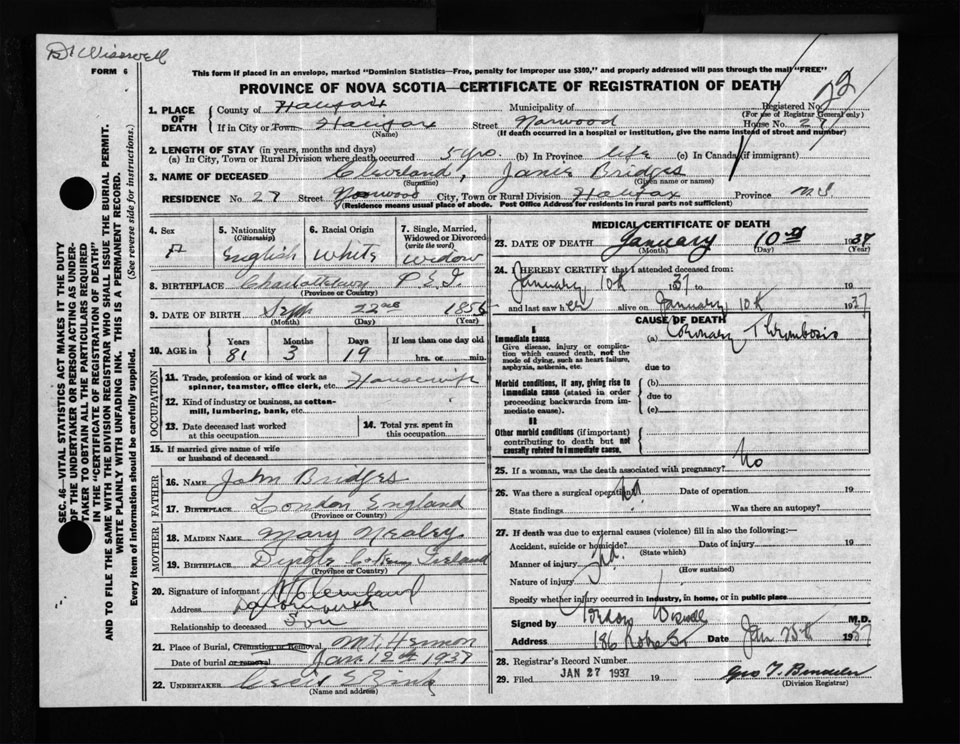 Dr Wisswell
FORM 6
This form if placed in an envelope, marked "Dominion Statistics—Free, penalty for improper use $300," and properly addressed will pass through the mail "FREE"
PROVINCE OF NOVA SCOTIA—CERTIFICATE OF REGISTRATION OF DEATH
SEC. 46—VITAL STATISTICS ACT MAKES IT THE DUTY
OF THE UNDERTAKER OR PERSON ACTING AS UNDER-
TAKER TO OBTAIN ALL THE PARTICULARS REQUIRED
IN THE "CERTIFICATE OF REGISTRATION OF DEATH"
AND TO FILE THE SAME WITH THE DIVISION REGISTRAR WHO SHALL ISSUE THE BURIAL PERMIT.
WRITE PLAINLY WITH UNFADING INK. THIS IS A PERMANENT RECORD.
Every item of information should be carefully supplied. (See reverse side for instructions.)
1. PLACE OF DEATH County of Halifax Municipality of Registered No. 22
(For use of Registrar General only)
If in City or Town Halifax Street Norwood House No. 27
(Name) (If death occurred in a hospital or institution, give the name instead of street and number)
2. LENGTH OF STAY (in years, months and days)
(a) In City, Town or Rural Division where death occurred 5 yrs. (b) In Province life (c) In Canada (if immigrant)
3. NAME OF DECEASED Cleveland, Janie Bridges
(Surname) (Given name or names)
RESIDENCE No 27 Street Norwood City, Town or Rural Division Halifax Province N.S
(Residence means usual place of abode. Post Office Address for residents in rural parts not sufficient)
4. Sex F
5. Nationality (Citizenship) English
6. Racial Origin White
7. Single, Married, Widowed or Divorced (write the word) Widow
8. BIRTHPLACE Charlottetown P.E.I.
(Province or Country)
9. DATE OF BIRTH Sept 22nd 1855
(Month) (Day) (Year)
10. AGE in Years 81 Months 3 Days 19 If less than one day old hrs. or min.
OCCUPATION
11. Trade, profession or kind of work as spinner, teamster, office clerk, etc. Housewife
12. Kind of industry or business, as cotton-mill, lumbering, bank, etc.
13. Date deceased last worked at this occupation
14. Total yrs. spent in this occupation
15. If married give name of wife or husband of deceased
FATHER
16. NAME John Bridges
17. BIRTHPLACE London England
(Province or Country)
MOTHER
18. MAIDEN NAME Mary Nealey
19. BIRTHPLACE
(Province or Country)
20. Signature of informant
Address Dartmouth
Relationship to deceased Son
21. Place of Burial, Cremation or Removal Mt. Hermon
Date of burial or removal Jan. 12th 1937
22. UNDERTAKER Cecil E Zink
(Name and address)
MEDICAL CERTIFICATE OF DEATH
23. DATE OF DEATH January 10th 1937
(Month) (Day) (Year)
24. I HEREBY CERTIFY that I attended deceased from:
January 10th 1937 to
and last saw her alive on January 10th 1937
CAUSE OF DEATH
I
Immediate cause (a) Coronary Thrombosis
Give disease, injury or complication which caused death, not the mode of dying, such as heart failure, asphyxia, asthenia, etc.
due to
Morbid conditions, if any, giving rise to immediate cause (stated in order proceeding backwards from immediate cause). (b)
due to
(c)
II
Other morbid conditions (if important) contributing to death but not causally related to immediate cause.
25. If a woman, was the death associated with pregnancy? No
26. Was there a surgical operation? No Date of operation 19
State findings Was there an autopsy?
27. If death was due to external causes (violence) fill in also the following:—
Accident, suicide or homicide? Date of injury 19
(State which)
Manner of injury
(How sustained)
Nature of injury
Specify whether injury occurred in industry, in home, or in public place
Signed by Gordon Wiswell M.D.
Address 186 Robie St Date Jan 25th 1937
28. Registrar's Record Number
29. Filed JAN 27 1937 19
(Division Registrar)